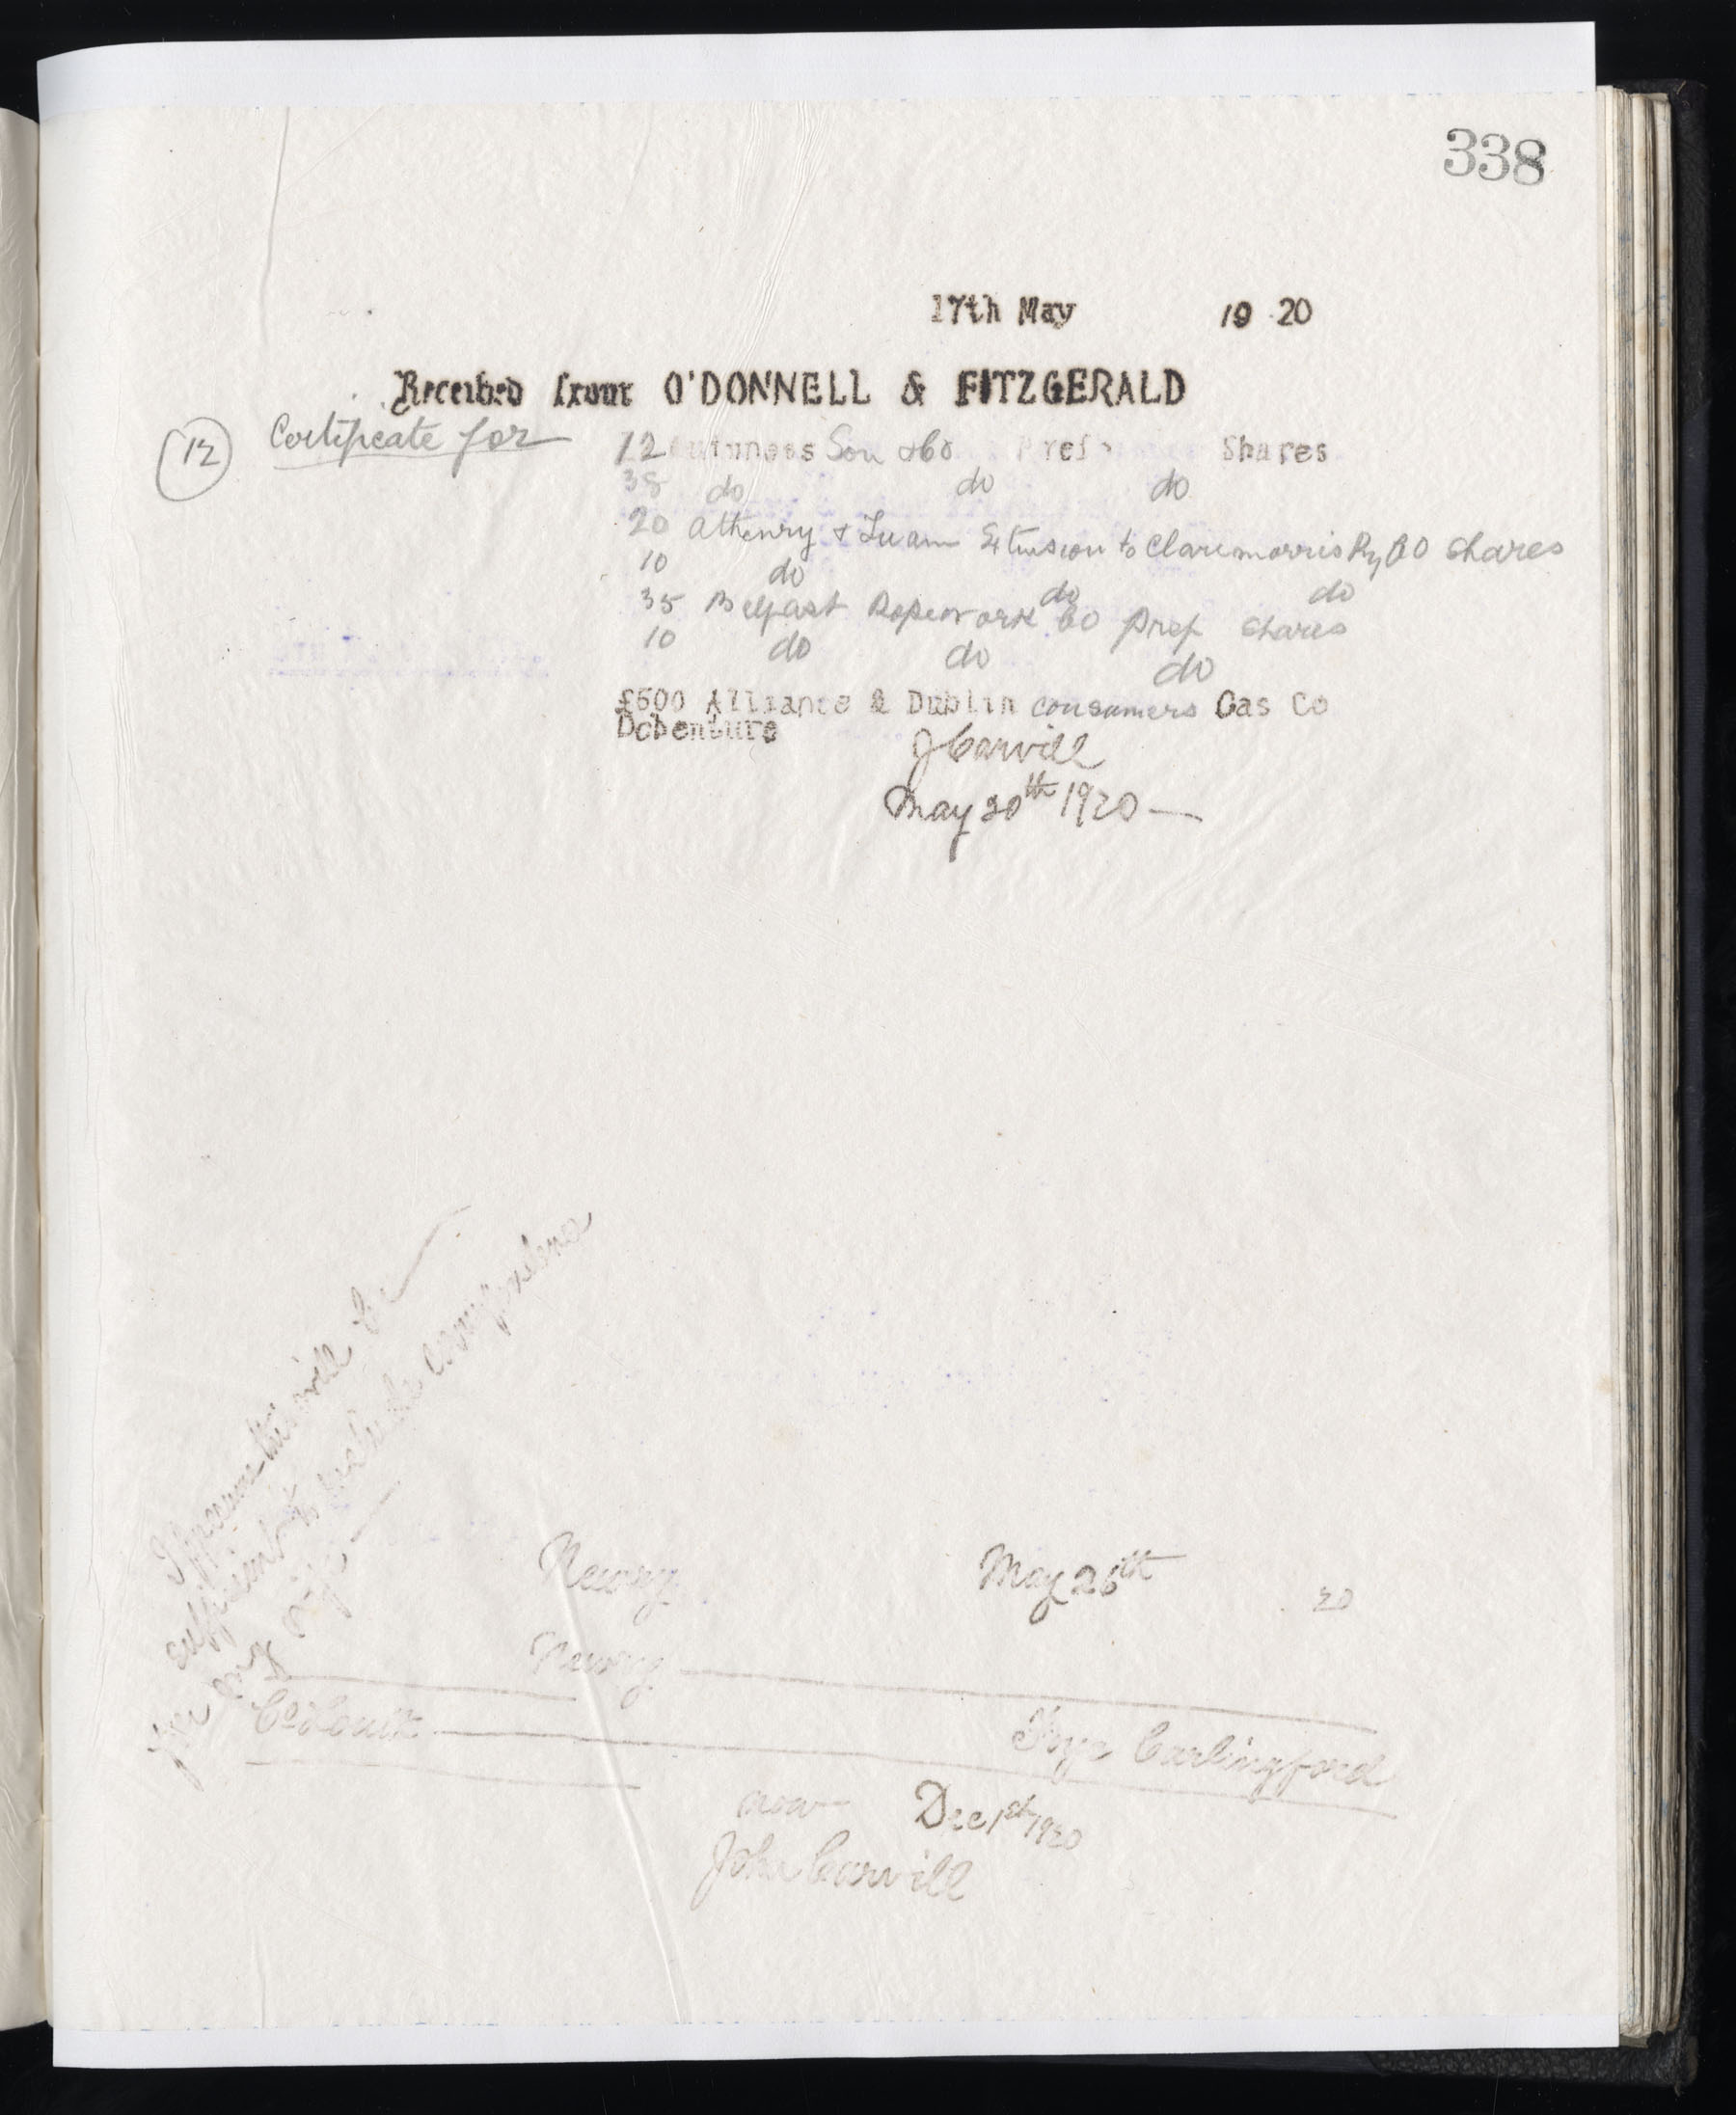 338
17th May 1920
Received from O'DONNELL & FITZGERALD
12 Certificate for 12 Guinness Son & Co Pref Shares
38 do do do
20 Athenry & Tuam Extension to Claremorris Ry Co Shares
10 do do do
35 Belfast Ropework Co Pref Shares
10 do do do
£500 Alliance & Dublin Consumers Gas Co
Debenture
J Carvill
May 20th 1920
I presume this will be
sufficient to
for any
Newry May 26th 20
Newry
Co Louth Carlingford
now Dec 1st 1920
John Carvill